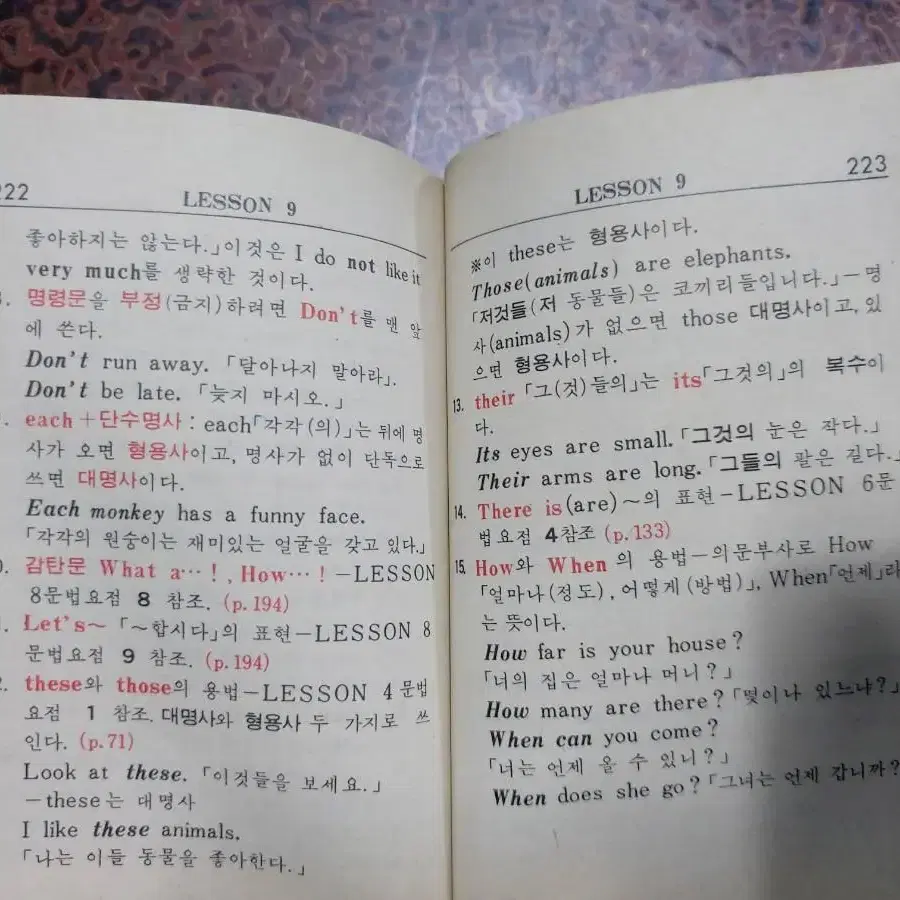 222
LESSON 9
좋아하지는 않는다.」이것은 I do not like it
very much를 생략한 것이다.
명령문을 부정(금지)하려면 Don't를 맨 앞
에 쓴다.
Don't run away. 「달아나지 말아라」.
Don't be late. 「늦지 마시오.」
each+단수명사 : each「각각(의)」는 뒤에 명
사가 오면 형용사이고, 명사가 없이 단독으로
쓰면 대명사이다.
Each monkey has a funny face.
「각각의 원숭이는 재미있는 얼굴을 갖고 있다.」
감탄문 What a…!, How…! —LESSON
8문법요점 8 참조. (p.194)
Let's~ 「~합시다」의 표현—LESSON 8
문법요점 9 참조. (p.194)
these와 those의 용법—LESSON 4문법
요점 1 참조. 대명사와 형용사 두 가지로 쓰
인다. (p.71)
Look at these. 「이것들을 보세요.」
—these는 대명사
I like these animals.
「나는 이들 동물을 좋아한다.」
LESSON 9
223
※이 these는 형용사이다.
Those(animals) are elephants.
「저것들(저 동물들)은 코끼리들입니다.」—명
사(animals)가 없으면 those 대명사이고, 있
으면 형용사이다.
13. their 「그(것)들의」는 its「그것의」의 복수이
다.
Its eyes are small.「그것의 눈은 작다.」
Their arms are long.「그들의 팔은 길다.」
14. There is(are)~의 표현—LESSON 6문
법요점 4참조 (p.133)
15. How와 When의 용법—의문부사로 How
「얼마나(정도), 어떻게(방법)」, When「언제」라
는 뜻이다.
How far is your house?
「너의 집은 얼마나 머니?」
How many are there?「몇이나 있느냐?」
When can you come?
「너는 언제 올 수 있니?」
When does she go?「그녀는 언제 갑니까?